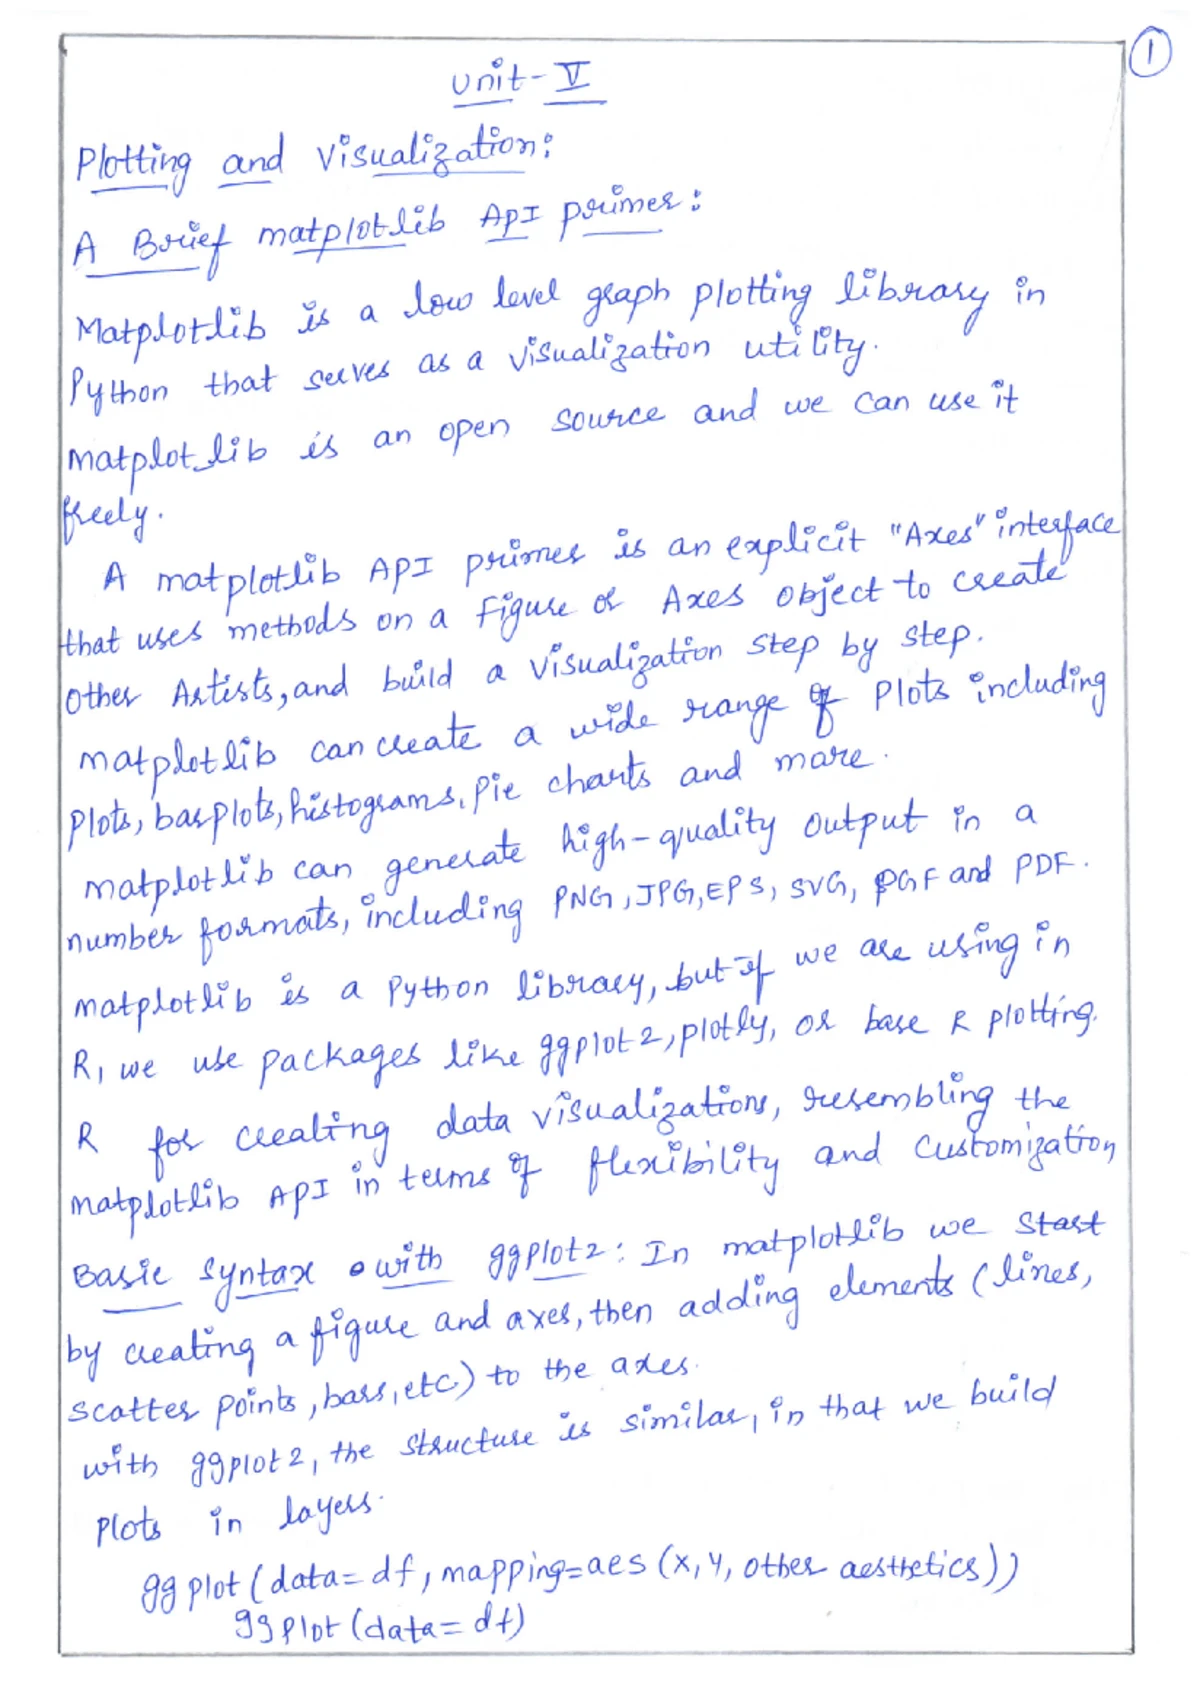 1
Unit-V
Plotting and Visualization:
A Brief matplotlib API primer:
Matplotlib is a low level graph plotting library in
Python that serves as a visualization utility.
matplotlib is an open source and we can use it
freely.
A matplotlib API primer is an explicit "Axes" interface
that uses methods on a Figure or Axes object to create
other Artists, and build a visualization step by step.
matplotlib can create a wide range of Plots including
plots, barplots, histograms, pie charts and more.
matplotlib can generate high-quality output in a
number formats, including PNG, JPG, EPS, SVG, PGF and PDF.
matplotlib is a Python library, but if we are using in
R, we use packages like ggplot2, plotly, or base R plotting.
R for creating data visualizations, resembling the
matplotlib API in terms of flexibility and customization
Basic Syntax with ggplot2: In matplotlib we start
by creating a figure and axes, then adding elements (lines,
scatter points, bars, etc.) to the axes.
with ggplot2, the structure is similar, in that we build
plots in layers.
ggplot(data=df, mapping=aes(x, y, other aesthetics))
ggplot(data=df)